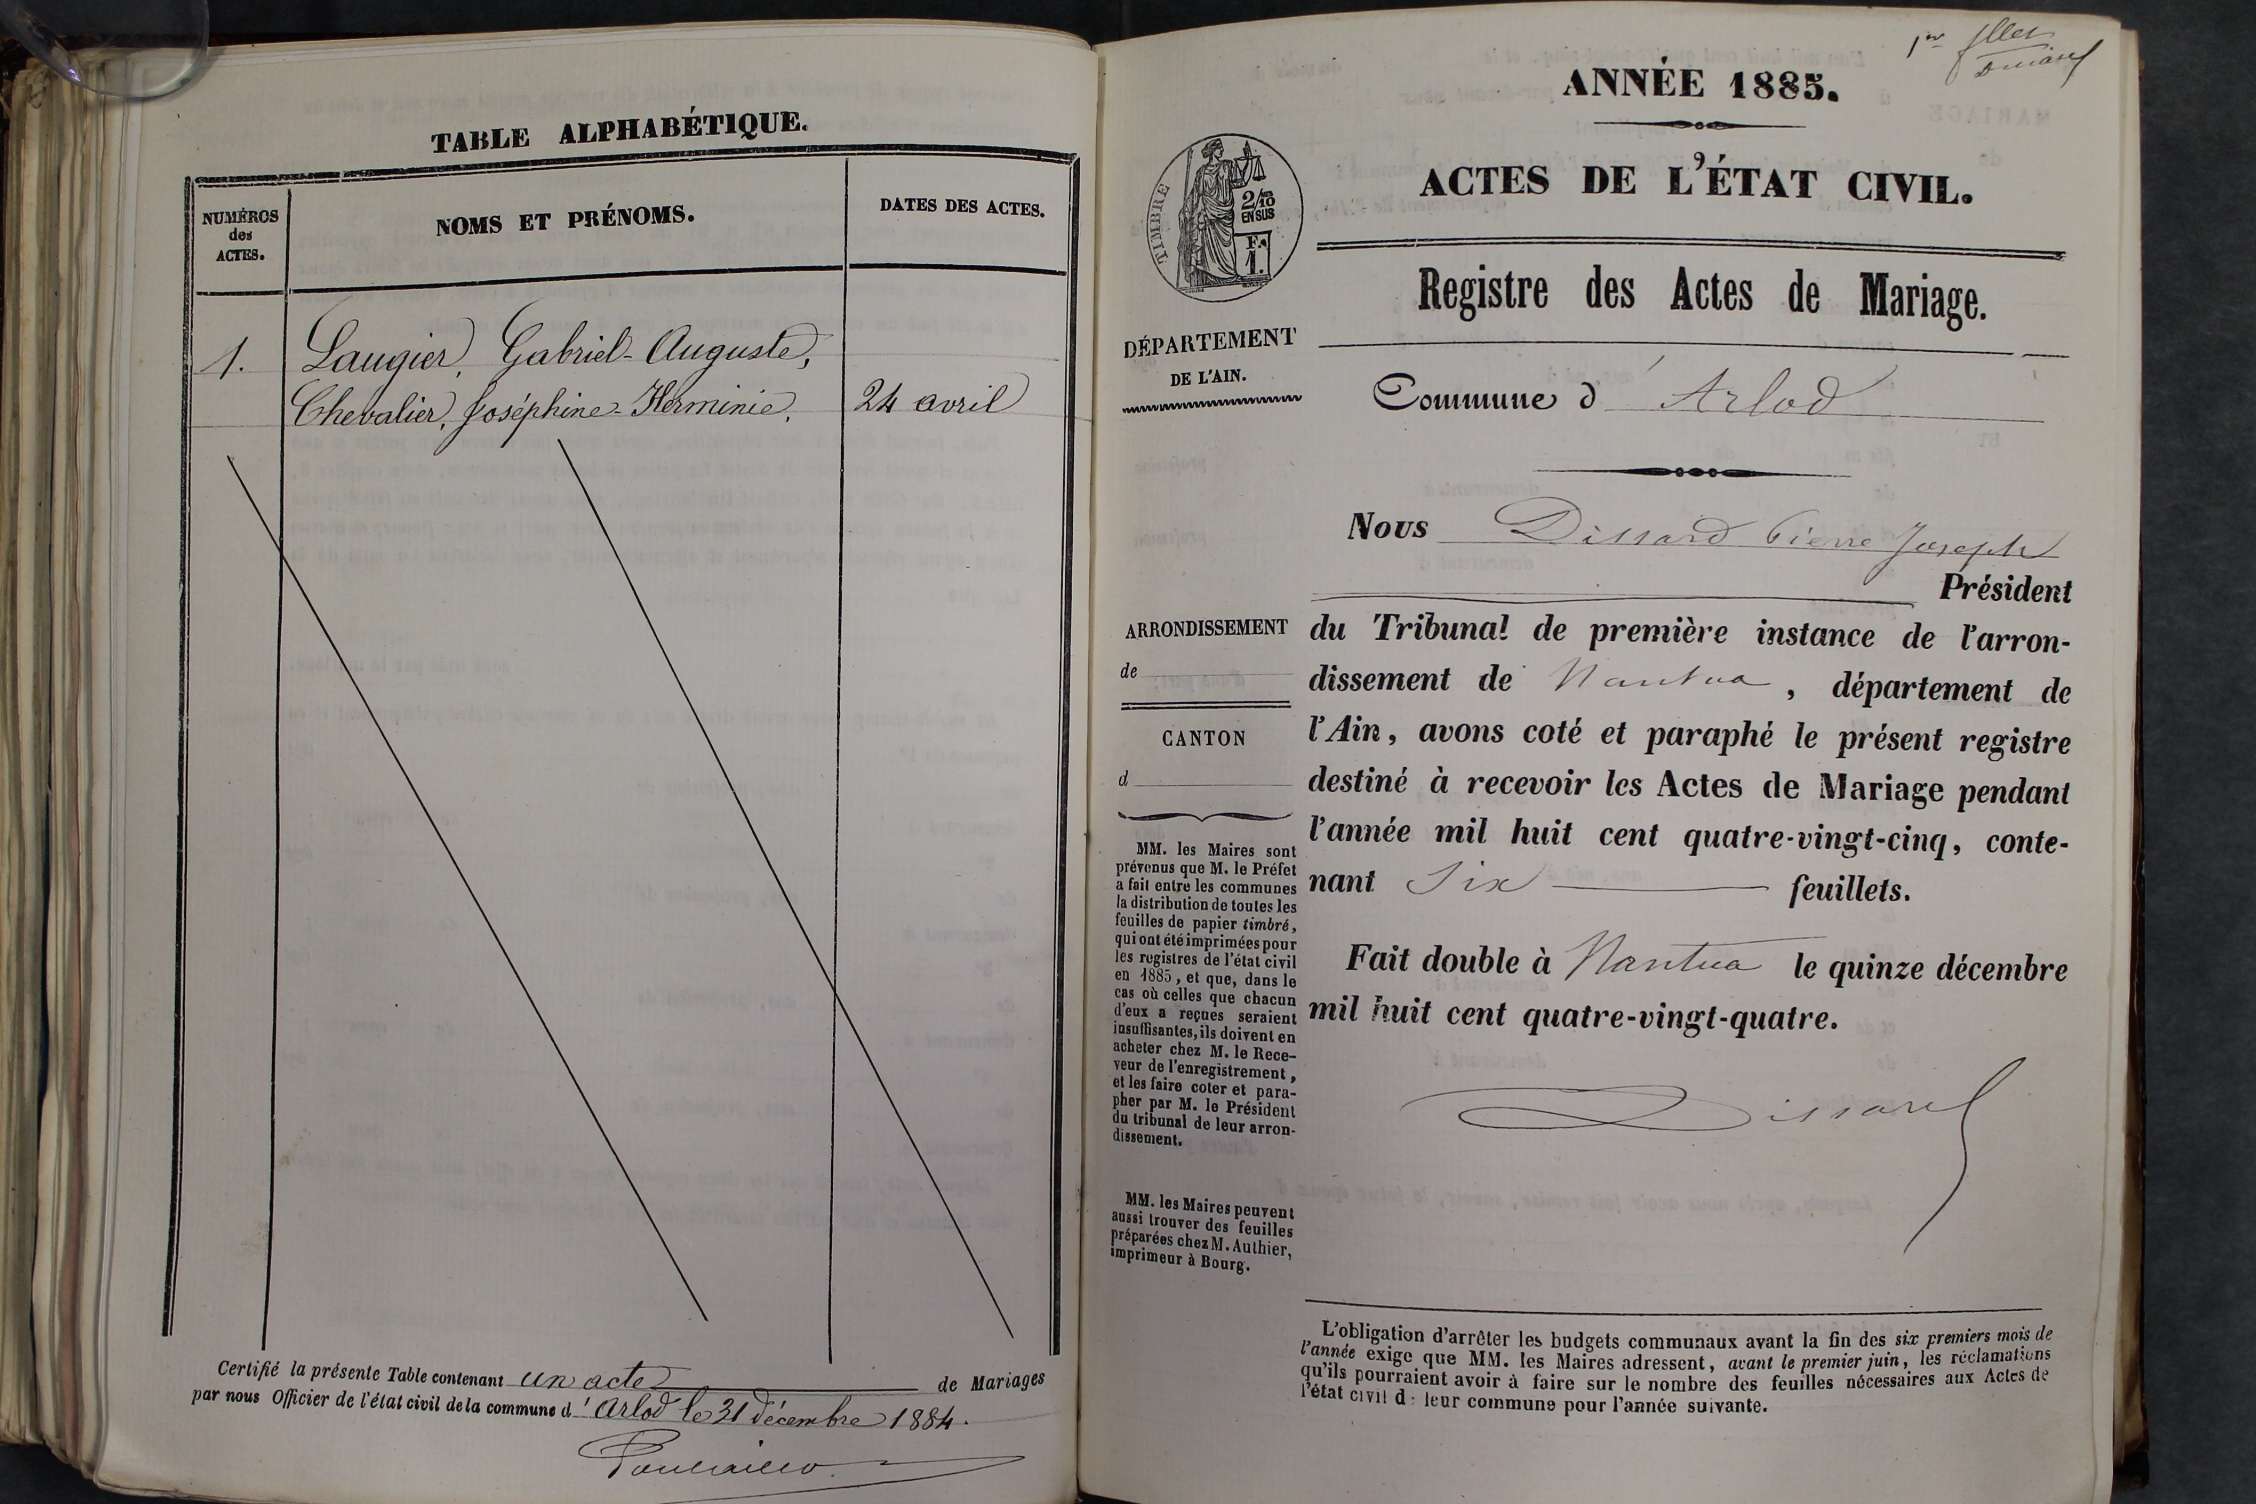 TABLE ALPHABÉTIQUE.
NUMÉROS
des
ACTES.
NOMS ET PRÉNOMS.
DATES DES ACTES.
1.
Laugier, Gabriel-Auguste,
Chevalier, Joséphine-Herminie.
24 avril
Certifié la présente Table contenant un acte de Mariages
par nous Officier de l'état civil de la commune d'Arlod le 31 décembre 1884.
1er flles
Dissard
ANNÉE 1885.
ACTES DE L'ÉTAT CIVIL.
TIMBRE
2/10
EN SUS
F.
1.
Registre des Actes de Mariage.
DÉPARTEMENT
DE L'AIN.
Commune d'Arlod
Nous Dissard Pierre Joseph
Président
du Tribunal de première instance de l'arron-
dissement de Nantua, département de
l'Ain, avons coté et paraphé le présent registre
destiné à recevoir les Actes de Mariage pendant
l'année mil huit cent quatre-vingt-cinq, conte-
nant Six feuillets.
Fait double à Nantua le quinze décembre
mil huit cent quatre-vingt-quatre.
Dissard
ARRONDISSEMENT
de
CANTON
d
MM. les Maires sont
prévenus que M. le Préfet
a fait entre les communes
la distribution de toutes les
feuilles de papier timbré,
qui ont été imprimées pour
les registres de l'état civil
en 1885, et que, dans le
cas où celles que chacun
d'eux a reçues seraient
insuffisantes, ils doivent en
acheter chez M. le Rece-
veur de l'enregistrement,
et les faire coter et para-
pher par M. le Président
du tribunal de leur arron-
dissement.
MM. les Maires peuvent
aussi trouver des feuilles
préparées chez M. Authier,
imprimeur à Bourg.
L'obligation d'arrêter les budgets communaux avant la fin des six premiers mois de
l'année exige que MM. les Maires adressent, avant le premier juin, les réclamations
qu'ils pourraient avoir à faire sur le nombre des feuilles nécessaires aux Actes de
l'état civil de leur commune pour l'année suivante.